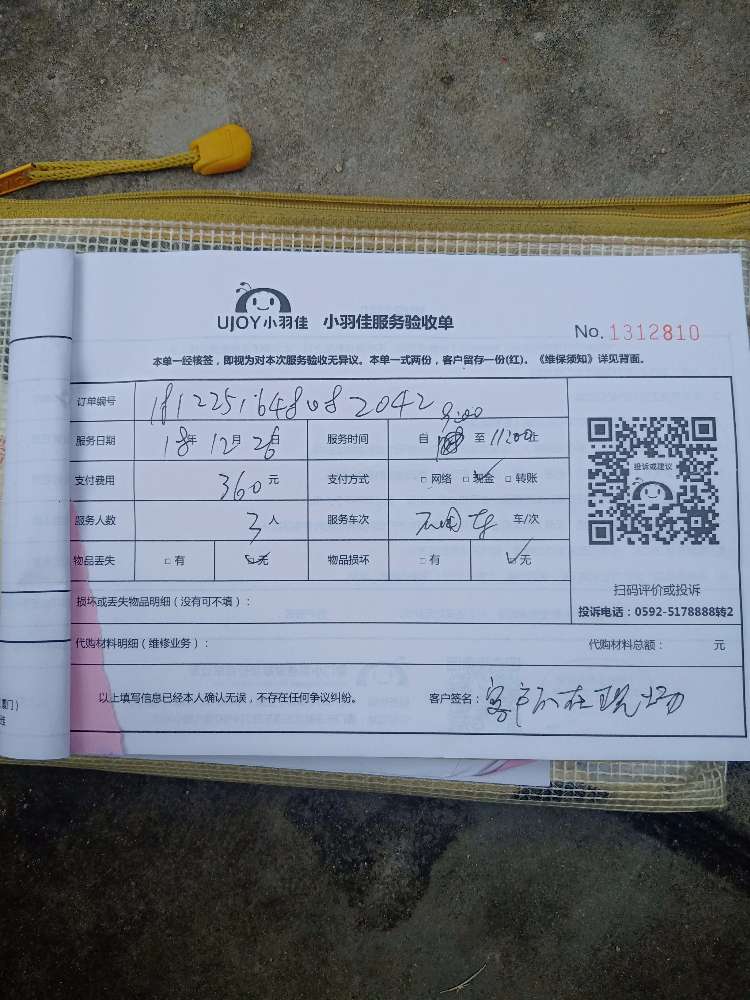 UJOY小羽佳 小羽佳服务验收单
No. 1312810
本单一经核签，即视为对本次服务验收无异议。本单一式两份，客户留存一份(红)。《维保须知》详见背面。
订单编号 1812251648082042
服务日期 18年12月26日 服务时间 自 9:00 至 11:00止
支付费用 360元 支付方式 □网络 ☑现金 □转账
服务人数 3人 服务车次 不用车 车/次
物品丢失 □有 ☑无 物品损坏 □有 ☑无
投诉或建议
扫码评价或投诉
投诉电话：0592-5178888转2
损坏或丢失物品明细（没有可不填）：
代购材料明细（维修业务）： 代购材料总额： 元
以上填写信息已经本人确认无误，不存在任何争议纠纷。 客户签名：客户不在现场